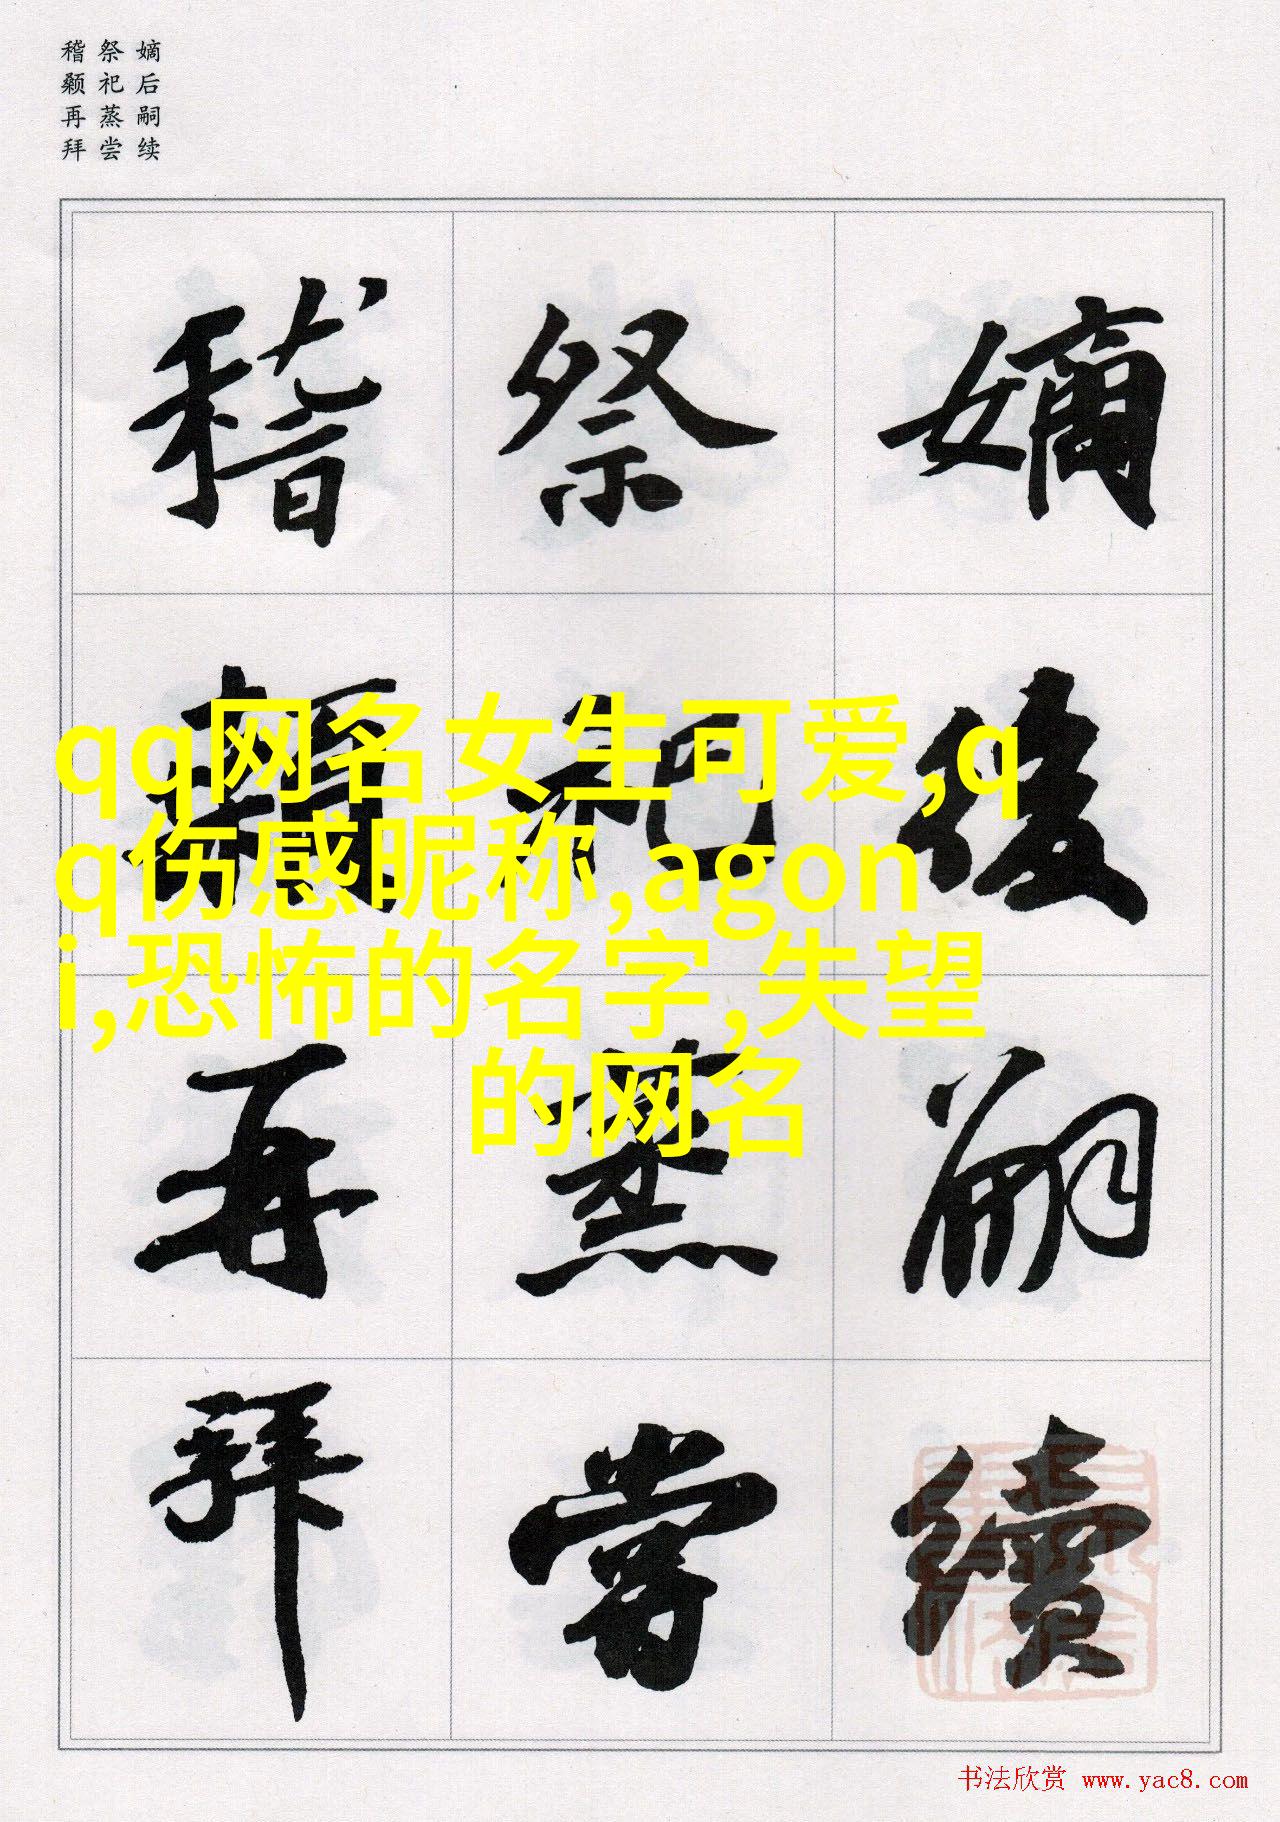 嫡后嗣续
祭祀蒸尝
稽颡再拜
嫡後嗣續
祭祀蒸嘗
稽顙再拜
qq网名女生可爱,q
q伤感昵称,agon
i,恐怖的名字,失望
的网名
书法欣赏 www.yac8.com